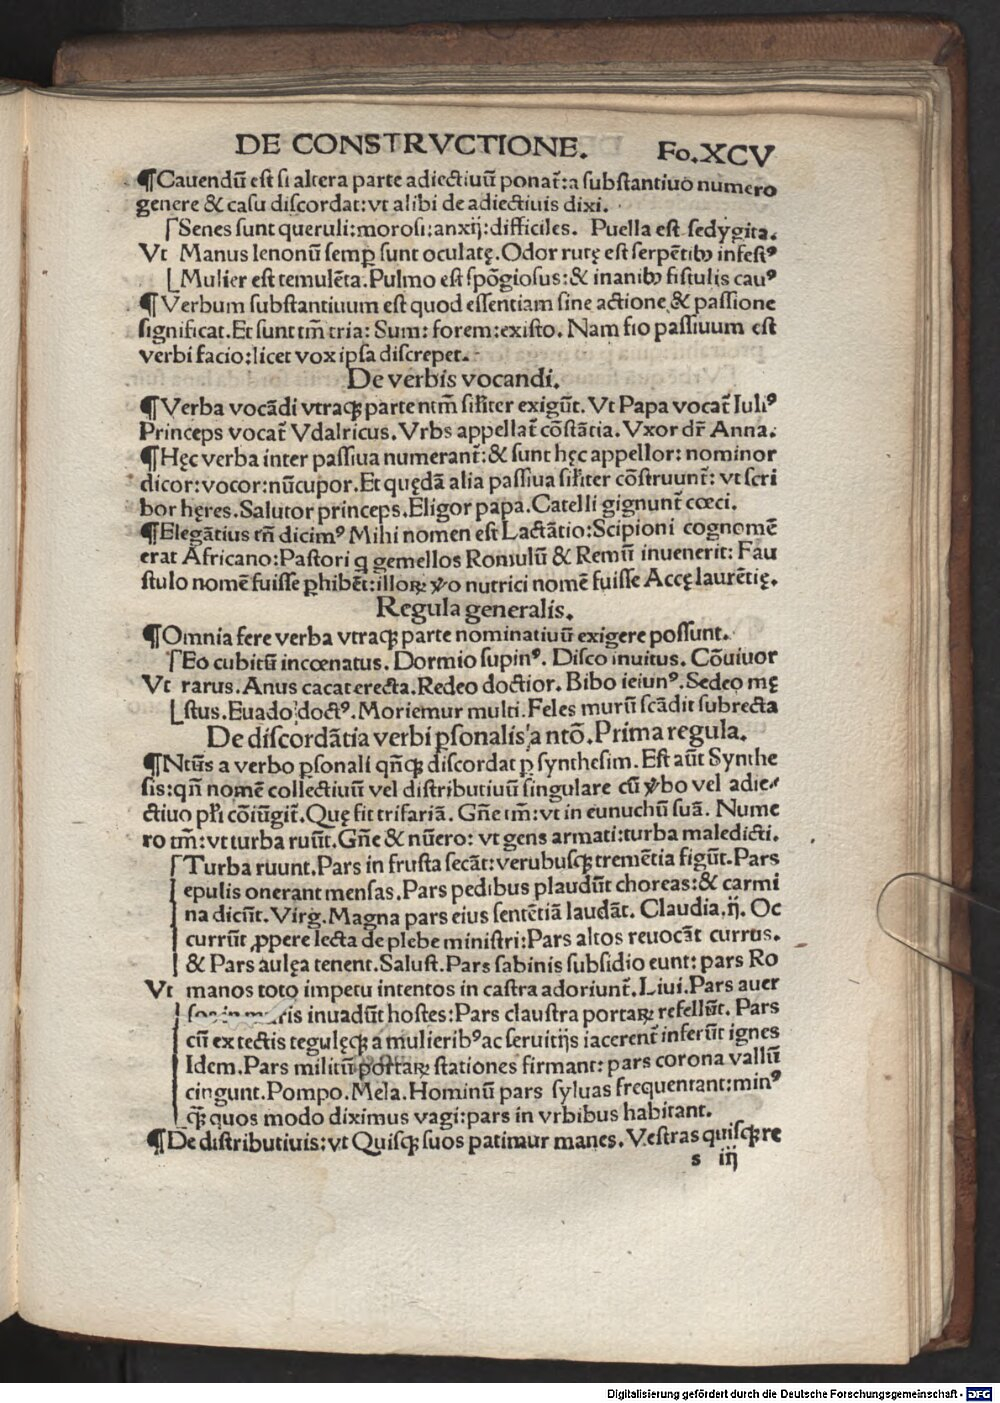 DE CONSTRVCTIONE. Fo.XCV
¶Cauendū est si altera parte adiectiuū ponat̄:a substantiuo numero
genere & casu discordat:vt alibi de adiectiuis dixi.
Senes sunt queruli:morosi:anxij:difficiles. Puella est sedygita.
Vt Manus lenonū semꝑ sunt oculatę.Odor rutę est serpētibꝫ infestꝰ
Mulier est temulēta.Pulmo est spōgiosus:& inanibꝫ fistulis cauꝰ
¶Verbum substantiuum est quod essentiam sine actione & passione
significat.Et sunt tm̄ tria: Sum: forem:existo. Nam fio passiuum est
verbi facio:licet vox ipsa discrepet.
De verbis vocandi.
¶Verba vocādi vtraqꝫ parte ntm̄ sil'iter exigūt. Vt Papa vocat̄ Iuliꝰ
Princeps vocat̄ Vdalricus.Vrbs appellat̄ cōstātia.Vxor dr̄ Anna.
¶Hęc verba inter passiua numerant̄:& sunt hęc appellor: nominor
dicor:vocor:nūcupor.Et quędā alia passiua sil'iter cōstruunt̄: vt scri
bor hęres.Salutor princeps.Eligor papa.Catelli gignunt̄ cœci.
¶Elegātius tn̄ dicimꝰ Mihi nomen est Lactātio:Scipioni cognomē
erat Africano:Pastori q gemellos Romulū & Remū inuenerit: Fau
stulo nomē fuisse ꝑhibēt:illoꝝ ꝟo nutrici nomē fuisse Accę laurētię.
Regula generalis.
¶Omnia fere verba vtraqꝫ parte nominatiuū exigere possunt.
Eo cubitū incœnatus. Dormio supinꝰ. Disco inuitus. Cōuiuor
Vt rarus.Anus cacat erecta.Redeo doctior.Bibo ieiunꝰ.Sedeo mę
stus.Euado doctꝰ.Moriemur multi.Feles murū scādit subrecta
De discordātia verbi ꝑsonalis a ntō.Prima regula.
¶Ntūs a verbo ꝑsonali qn̄qꝫ discordat ꝑ synthesim. Est aūt Synthe
sis:qn̄ nomē collectiuū vel distributiuū singulare cū ꝟbo vel adie⸗
ctiuo pl'i cōiūgit̄.Quę fit trifariā. Gn̄e tm̄:vt in eunuchū suā. Nume
ro tm̄:vt turba ruūt.Gn̄e & nūero: vt gens armati:turba maledicti.
Turba ruunt.Pars in frusta secāt:verubusqꝫ tremētia figūt.Pars
epulis onerant mensas.Pars pedibus plaudūt choreas:& carmi
na dicūt.Virg.Magna pars eius sentētiā laudāt. Claudia.ij. Oc
currūt ꝓpere lecta de plebe ministri:Pars altos reuocāt currus.
& Pars aulęa tenent.Salust.Pars sabinis subsidio eunt: pars Ro
Vt manos toto impetu intentos in castra adoriunt̄.Liui.Pars auer
sos in muris inuadūt hostes:Pars claustra portaꝝ refellūt. Pars
cū ex tectis tegulęqꝫ a mulieribꝰ ac seruitijs iacerent̄ inferūt ignes
Idem.Pars militū portaꝝ stationes firmant: pars corona vallū
cingunt.Pompo.Mela.Hominū pars syluas frequentant:minꝰ
qꝫ̄ quos modo diximus vagi:pars in vrbibus habitant.
¶De distributiuis:vt Quisqꝫ suos patimur manes.Vestras quisqꝫ re
s iij
Digitalisierung gefördert durch die Deutsche Forschungsgemeinschaft - DFG